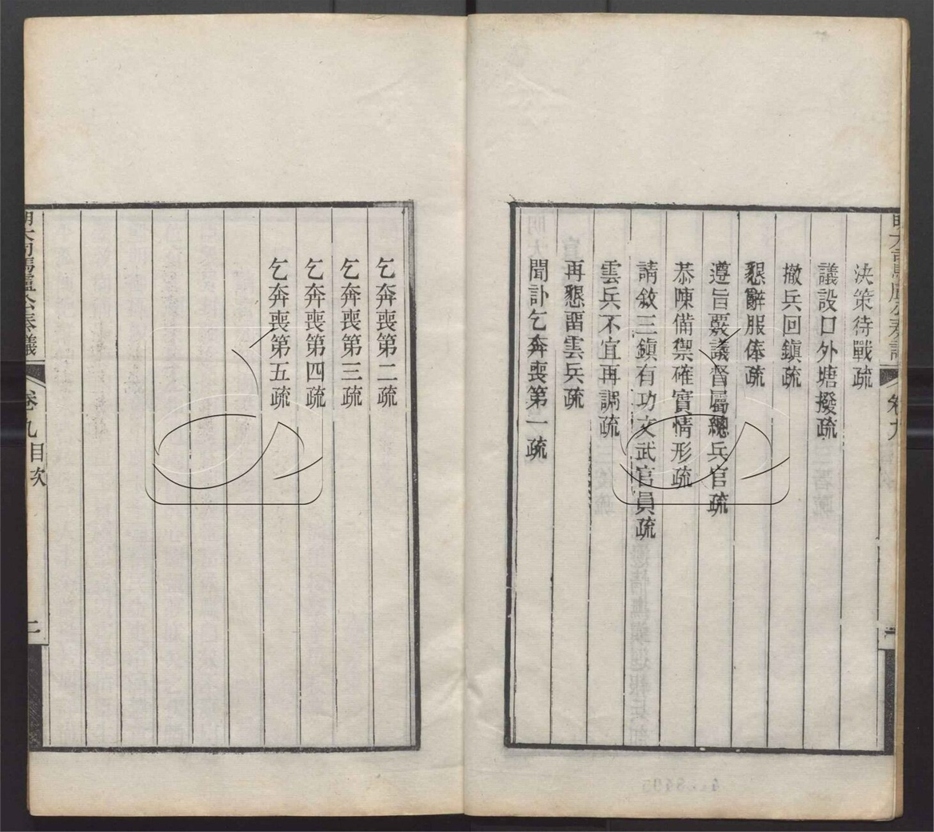 決策待戰疏
議設口外塘撥疏
撤兵回鎮疏
懇辭服俸疏
遵旨覈議督屬總兵官疏
恭陳備禦確實情形疏
請敘三鎮有功文武官員疏
雲兵不宜再調疏
再懇留雲兵疏
聞訃乞奔喪第一疏
乞奔喪第二疏
乞奔喪第三疏
乞奔喪第四疏
乞奔喪第五疏
明大司馬盧公奏議
卷九目次
二